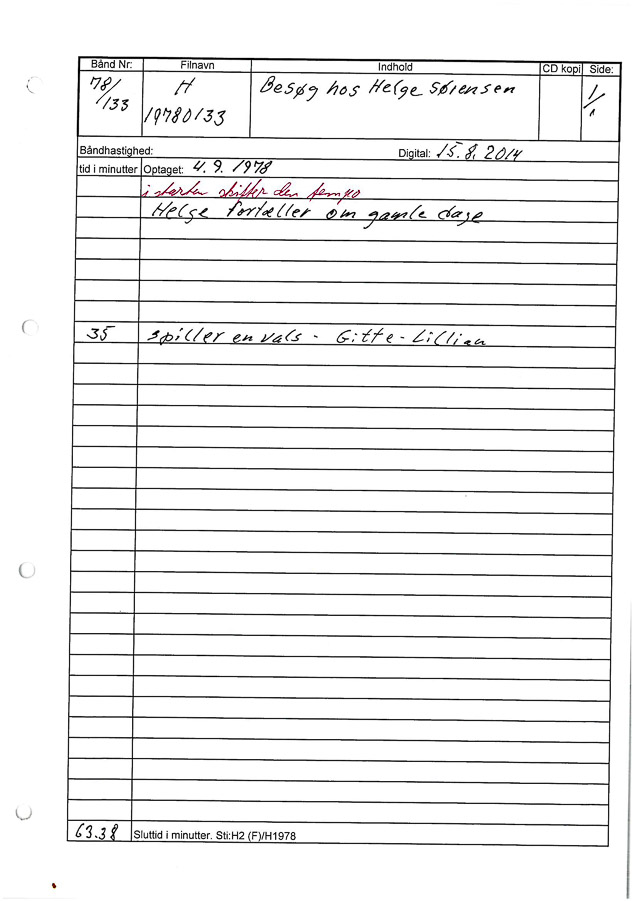 Bånd Nr: Filnavn Indhold CD kopi Side:
78/133 H 19780133 Besøg hos Helge Sørensen 1/1
Båndhastighed: Digital: 15.8.2014
tid i minutter Optaget: 4.9.1978
i starten skifter den tempo
Helge fortæller om gamle dage
35 spiller en vals - Gitte-Lillian
63.38 Sluttid i minutter. Sti:H2 (F)/H1978